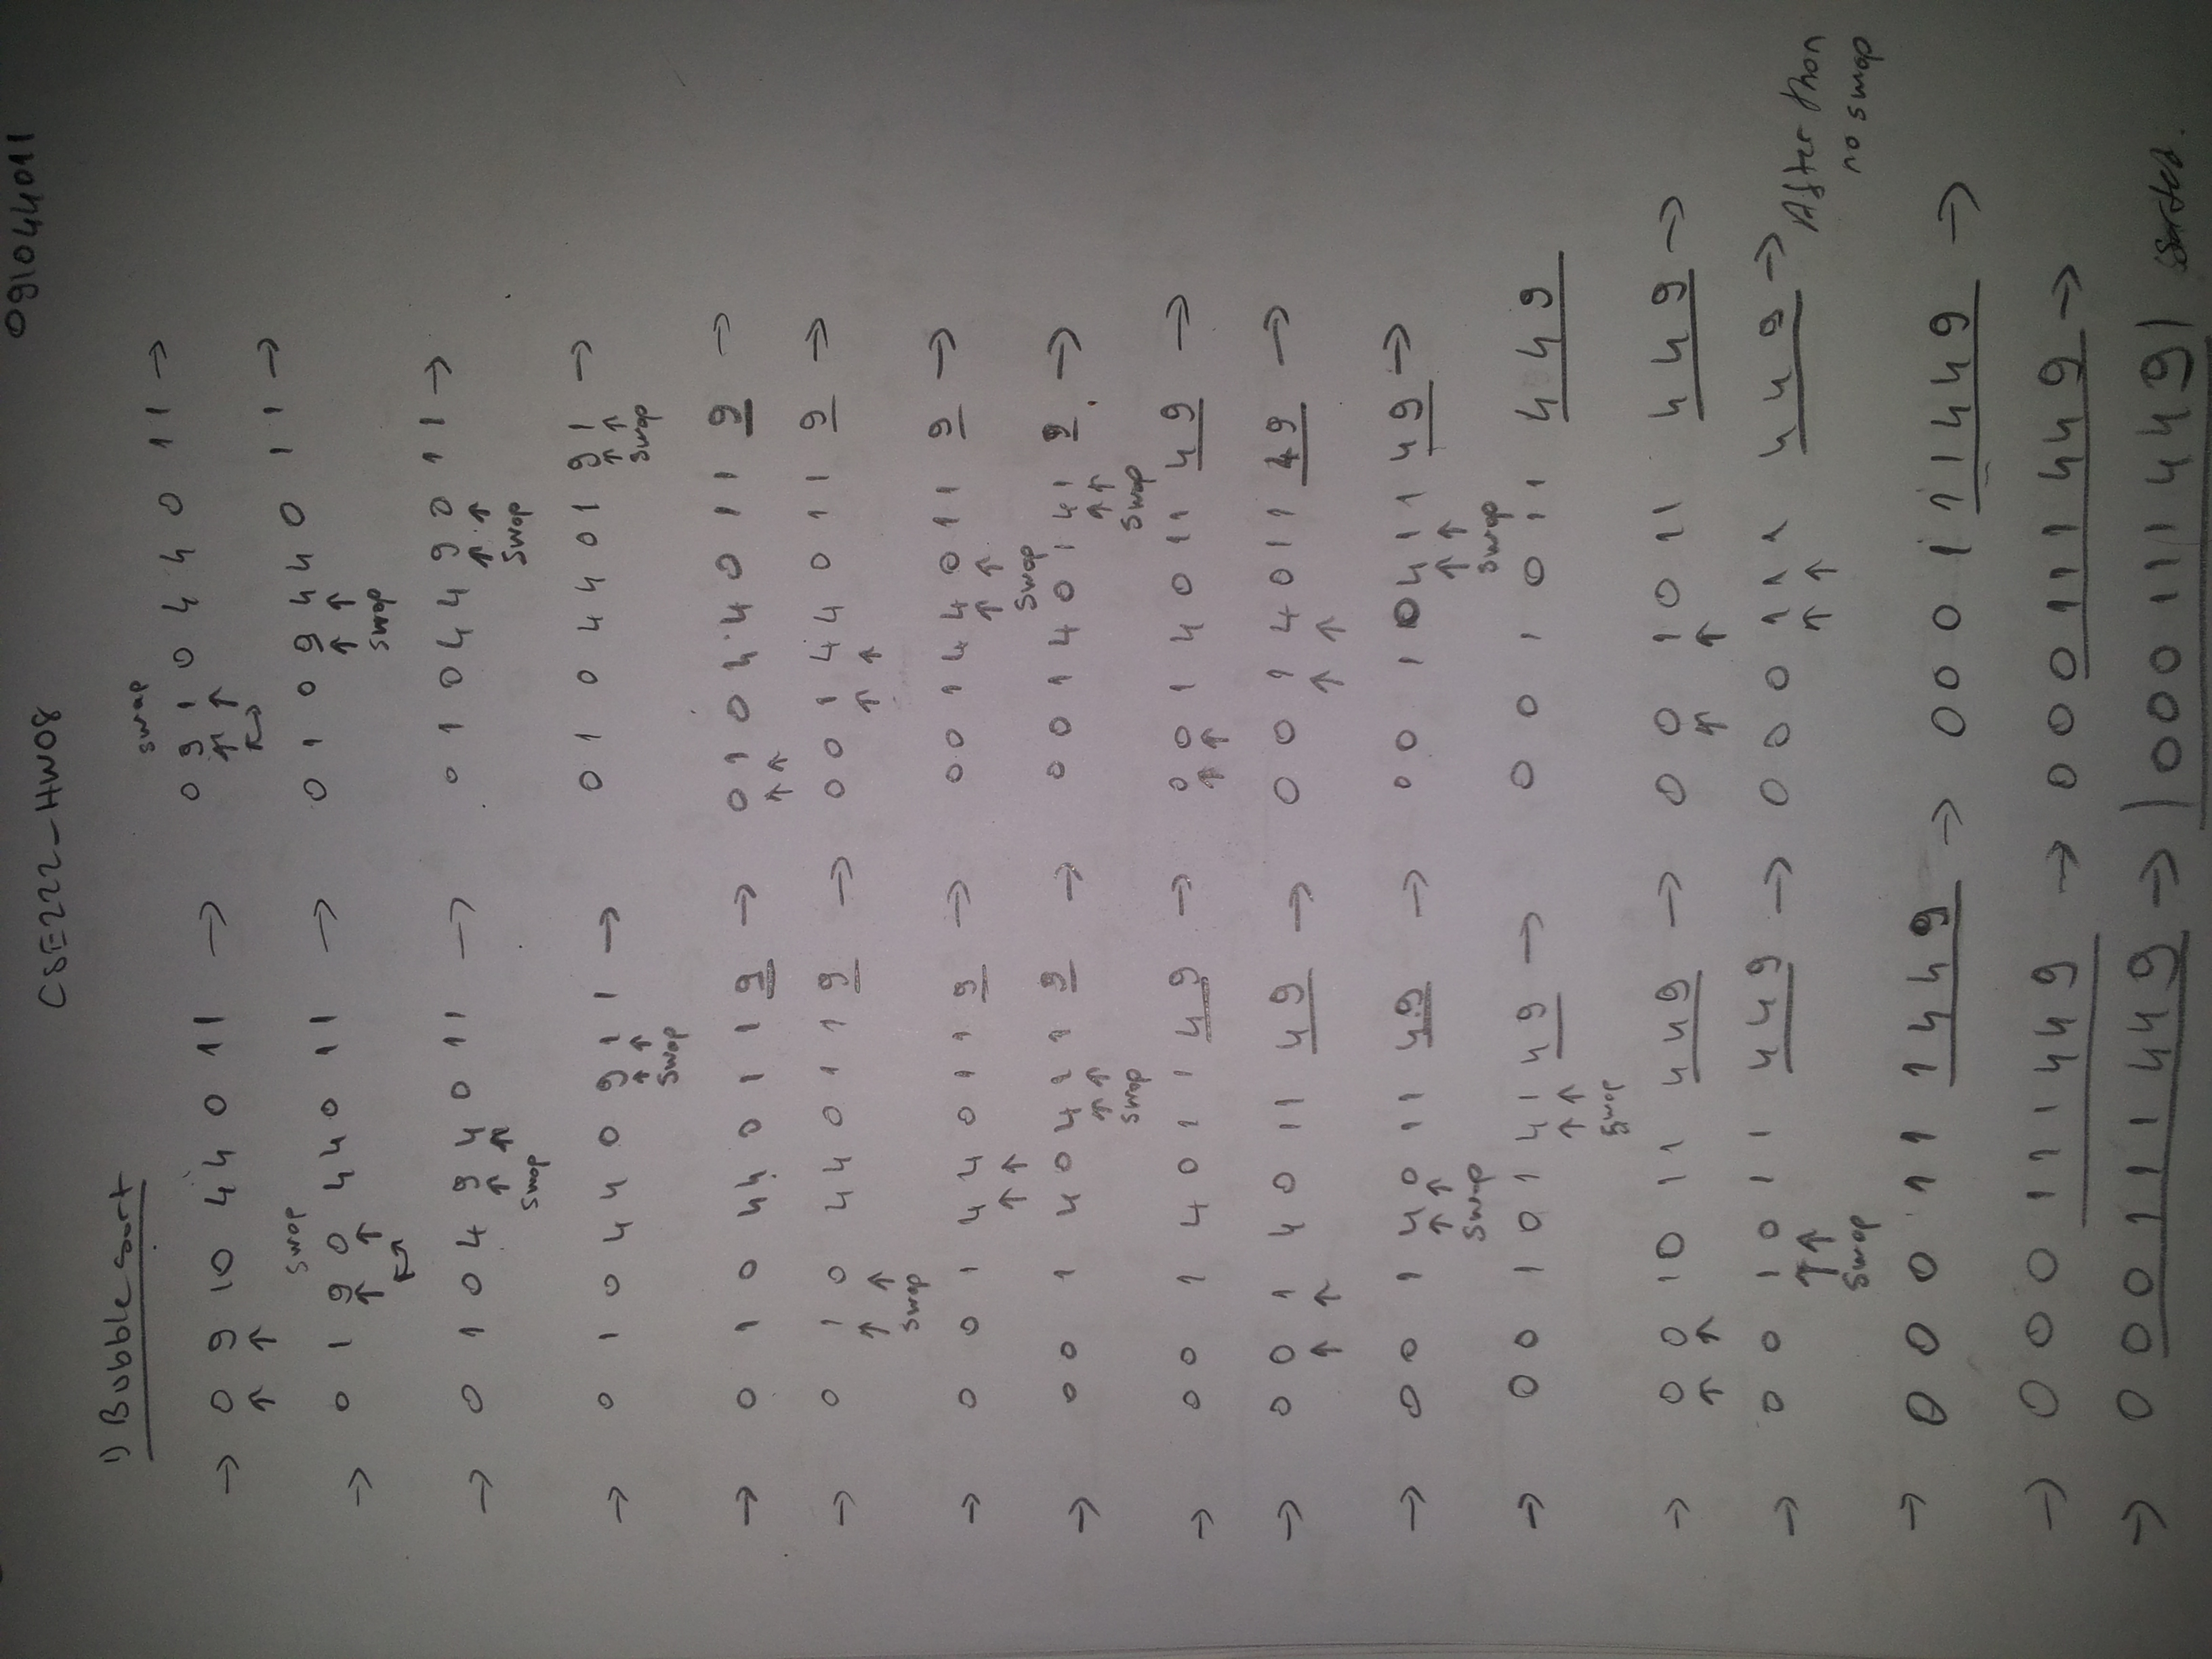 091044011
CSE222_HW08
1) Bubble sort
swap
→ 0 9 1 0 4 4 0 1 1 → 0 9 1 0 4 4 0 1 1 →
swap
→ 0 1 9 0 4 4 0 1 1 → 0 1 0 9 4 4 0 1 1 →
swap
→ 0 1 0 4 9 4 0 1 1 → 0 1 0 4 4 9 0 1 1 →
swap swap
→ 0 1 0 4 4 0 9 1 1 → 0 1 0 4 4 0 1 9 1 →
swap swap
→ 0 1 0 4 4 0 1 1 9 → 0 1 0 4 4 0 1 1 9 →
→ 0 1 0 4 4 0 1 1 9 → 0 0 1 4 4 0 1 1 9 →
swap
→ 0 0 1 4 4 0 1 1 9 → 0 0 1 4 4 0 1 1 9 →
swap
→ 0 0 1 4 0 4 1 1 9 → 0 0 1 4 0 1 4 1 9 →
swap swap
→ 0 0 1 4 0 1 1 4 9 → 0 0 1 4 0 1 1 4 9 →
→ 0 0 1 4 0 1 1 4 9 → 0 0 1 4 0 1 1 4 9 →
→ 0 0 1 4 0 1 1 4 9 → 0 0 1 0 4 1 1 4 9 →
swap swap
→ 0 0 1 0 1 4 1 4 9 → 0 0 1 0 1 1 4 4 9
swap
→ 0 0 1 0 1 1 4 4 9 → 0 0 1 0 1 1 4 4 9 →
→ 0 0 1 0 1 1 4 4 9 → 0 0 0 1 1 1 4 4 9 → After than
swap no swap
→ 0 0 0 1 1 1 4 4 9 → 0 0 0 1 1 1 4 4 9 →
→ 0 0 0 1 1 1 4 4 9 → 0 0 0 1 1 1 4 4 9 →
→ 0 0 0 1 1 1 4 4 9 → | 0 0 0 1 1 1 4 4 9 | sorted.